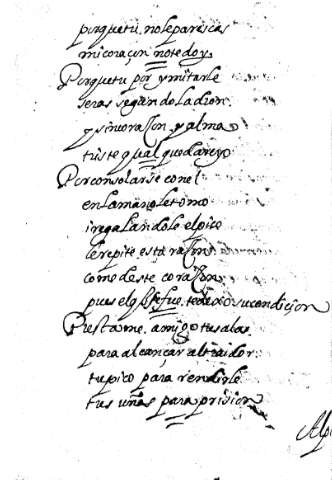 porque tu nole parescas
mi coraçon no te doy
Porque tu por ymitarle
seras segundo ladron
y sin coraçon y alma
triste qual quedare yo
Por consolarse con el
en la mano le tomo
i regalandole el pico
le repite esta raçon
como de este coraçon
pues el q se fue te dexo su condicion
Prestame amigo tus alas
para alcançar al traidor
tu pico para rendirle
tus uñas para prision